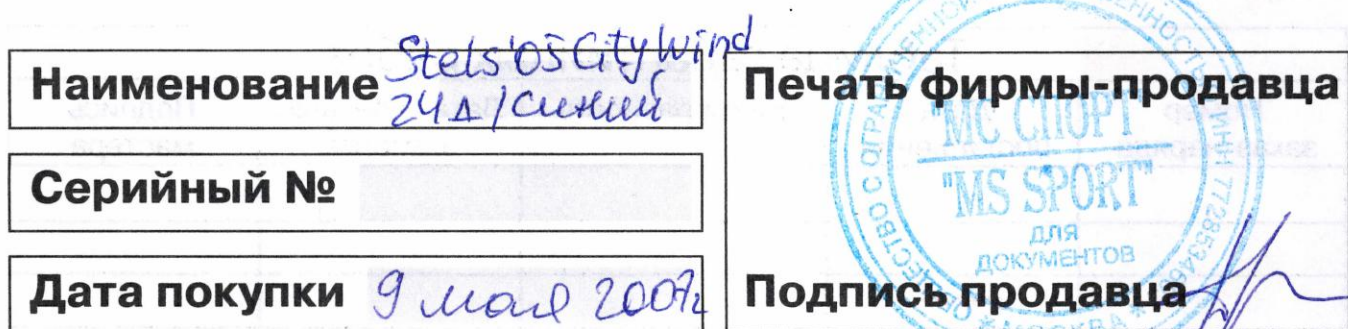 Наименование Stels'05 City Wind
24д / синий
Серийный №
Дата покупки 9 мая 2007г
Печать фирмы-продавца
"МС СПОРТ"
"MS SPORT"
ДЛЯ
ДОКУМЕНТОВ
Подпись продавца